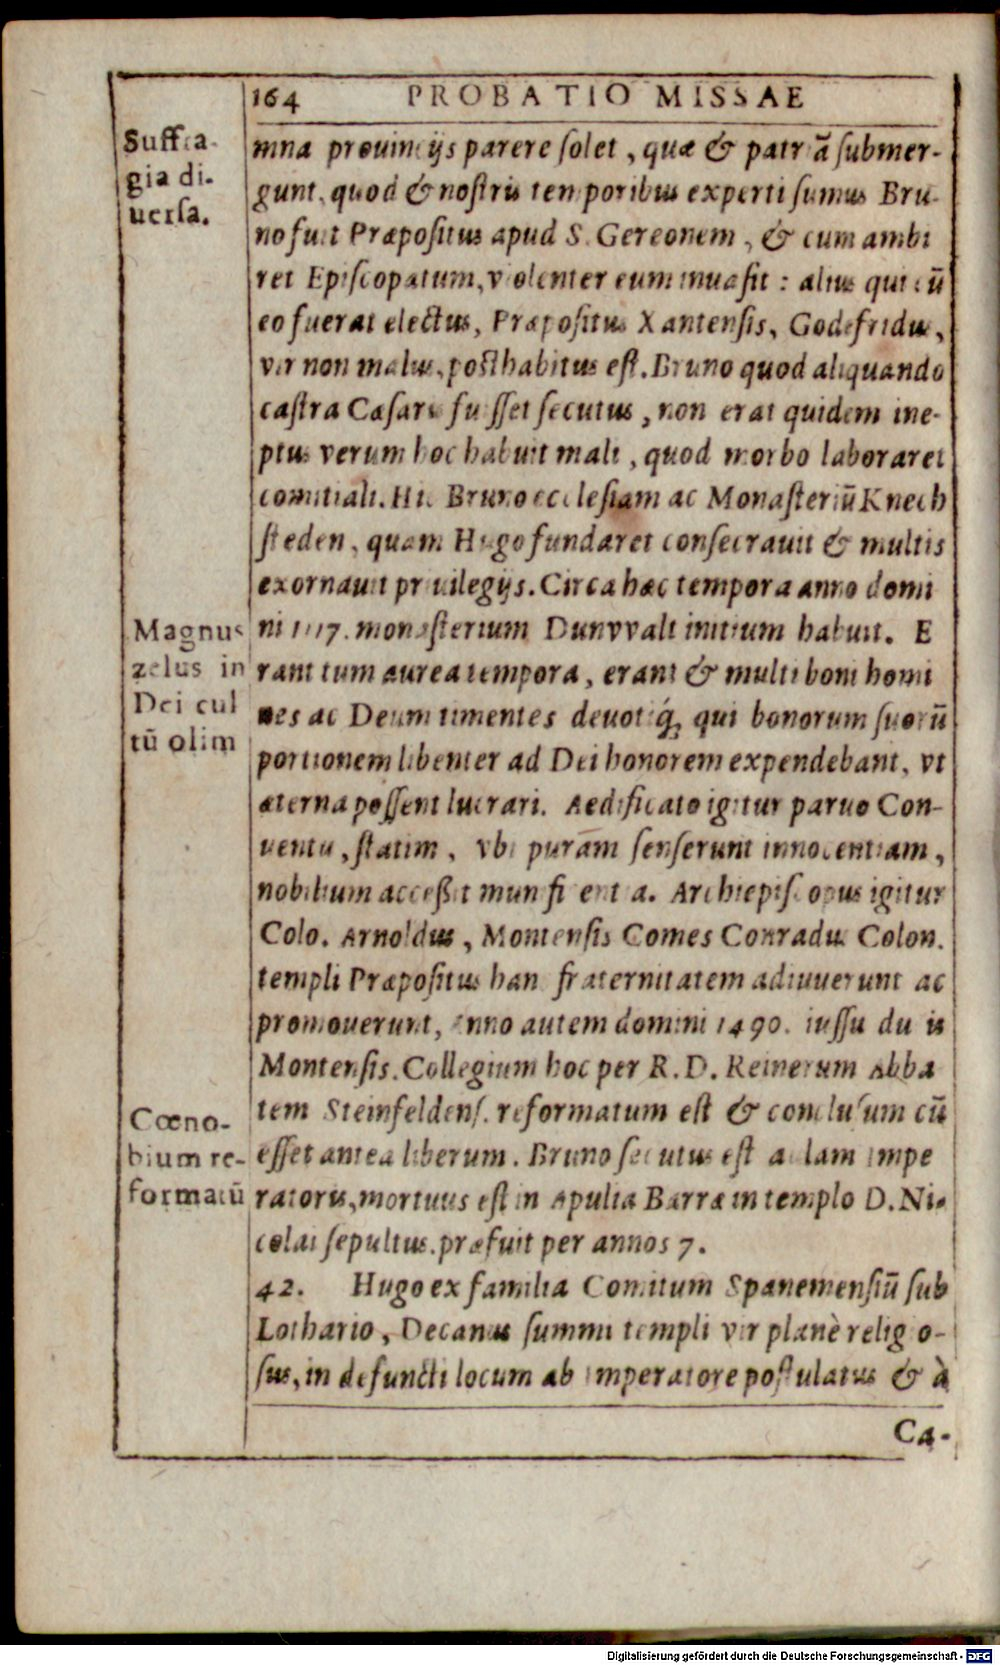 164 PROBATIO MISSAE
Suffra-
gia di-
uersa.
mna prouincijs parere solet, quæ & patriã submer-
gunt, quod & nostris temporibus experti sumus Bru-
no fuit Præpositus apud S. Gereonem, & cum ambi
ret Episcopatum, violenter eum inuasit : alius qui cũ
eo fuerat electus, Præpositus Xantensis, Godefridus,
vir non malus, posthabitus est. Bruno quod aliquando
castra Cæsaris fuisset secutus, non erat quidem ine-
ptus verum hoc habuit mali, quod morbo laboraret
comitiali. Hic Bruno ecclesiam ac Monasteriũ Knech
steden, quam Hugo fundaret consecrauit & multis
exornauit priuilegijs. Circa hæc tempora anno domi
ni 1117. monasterium Dunvvalt initium habuit. E
rant tum aurea tempora, erant & multi boni homi
nes ac Deum timentes deuotiq́, qui bonorum suorũ
portionem libenter ad Dei honorem expendebant, vt
æterna possent lucrari. Aedificato igitur paruo Con-
uentu, statim, vbi puram senserunt innocentiam,
nobilium acceßit munificentia. Archiepiscopus igitur
Colo. Arnoldus, Montensis Comes Conradus Colon.
templi Præpositus hanc fraternitatem adiuuerunt ac
promouerunt, anno autem domini 1490. iussu ducis
Montensis. Collegium hoc per R. D. Reinerum Abba
tem Steinfeldens. reformatum est & conclusum cũ
esset antea liberum. Bruno secutus est aulam Impe
ratoris, mortuus est in Apulia Barræ in templo D. Ni-
colai sepultus. præfuit per annos 7.
42. Hugo ex familia Comitum Spanemensiũ sub
Lothario, Decanus summi templi vir planè religio-
sus, in defuncti locum ab Imperatore postulatus & à
Magnus
zelus in
Dei cul
tũ olim
Cœno-
bium re-
formatũ
Ca-
Digitalisierung gefördert durch die Deutsche Forschungsgemeinschaft - DFG